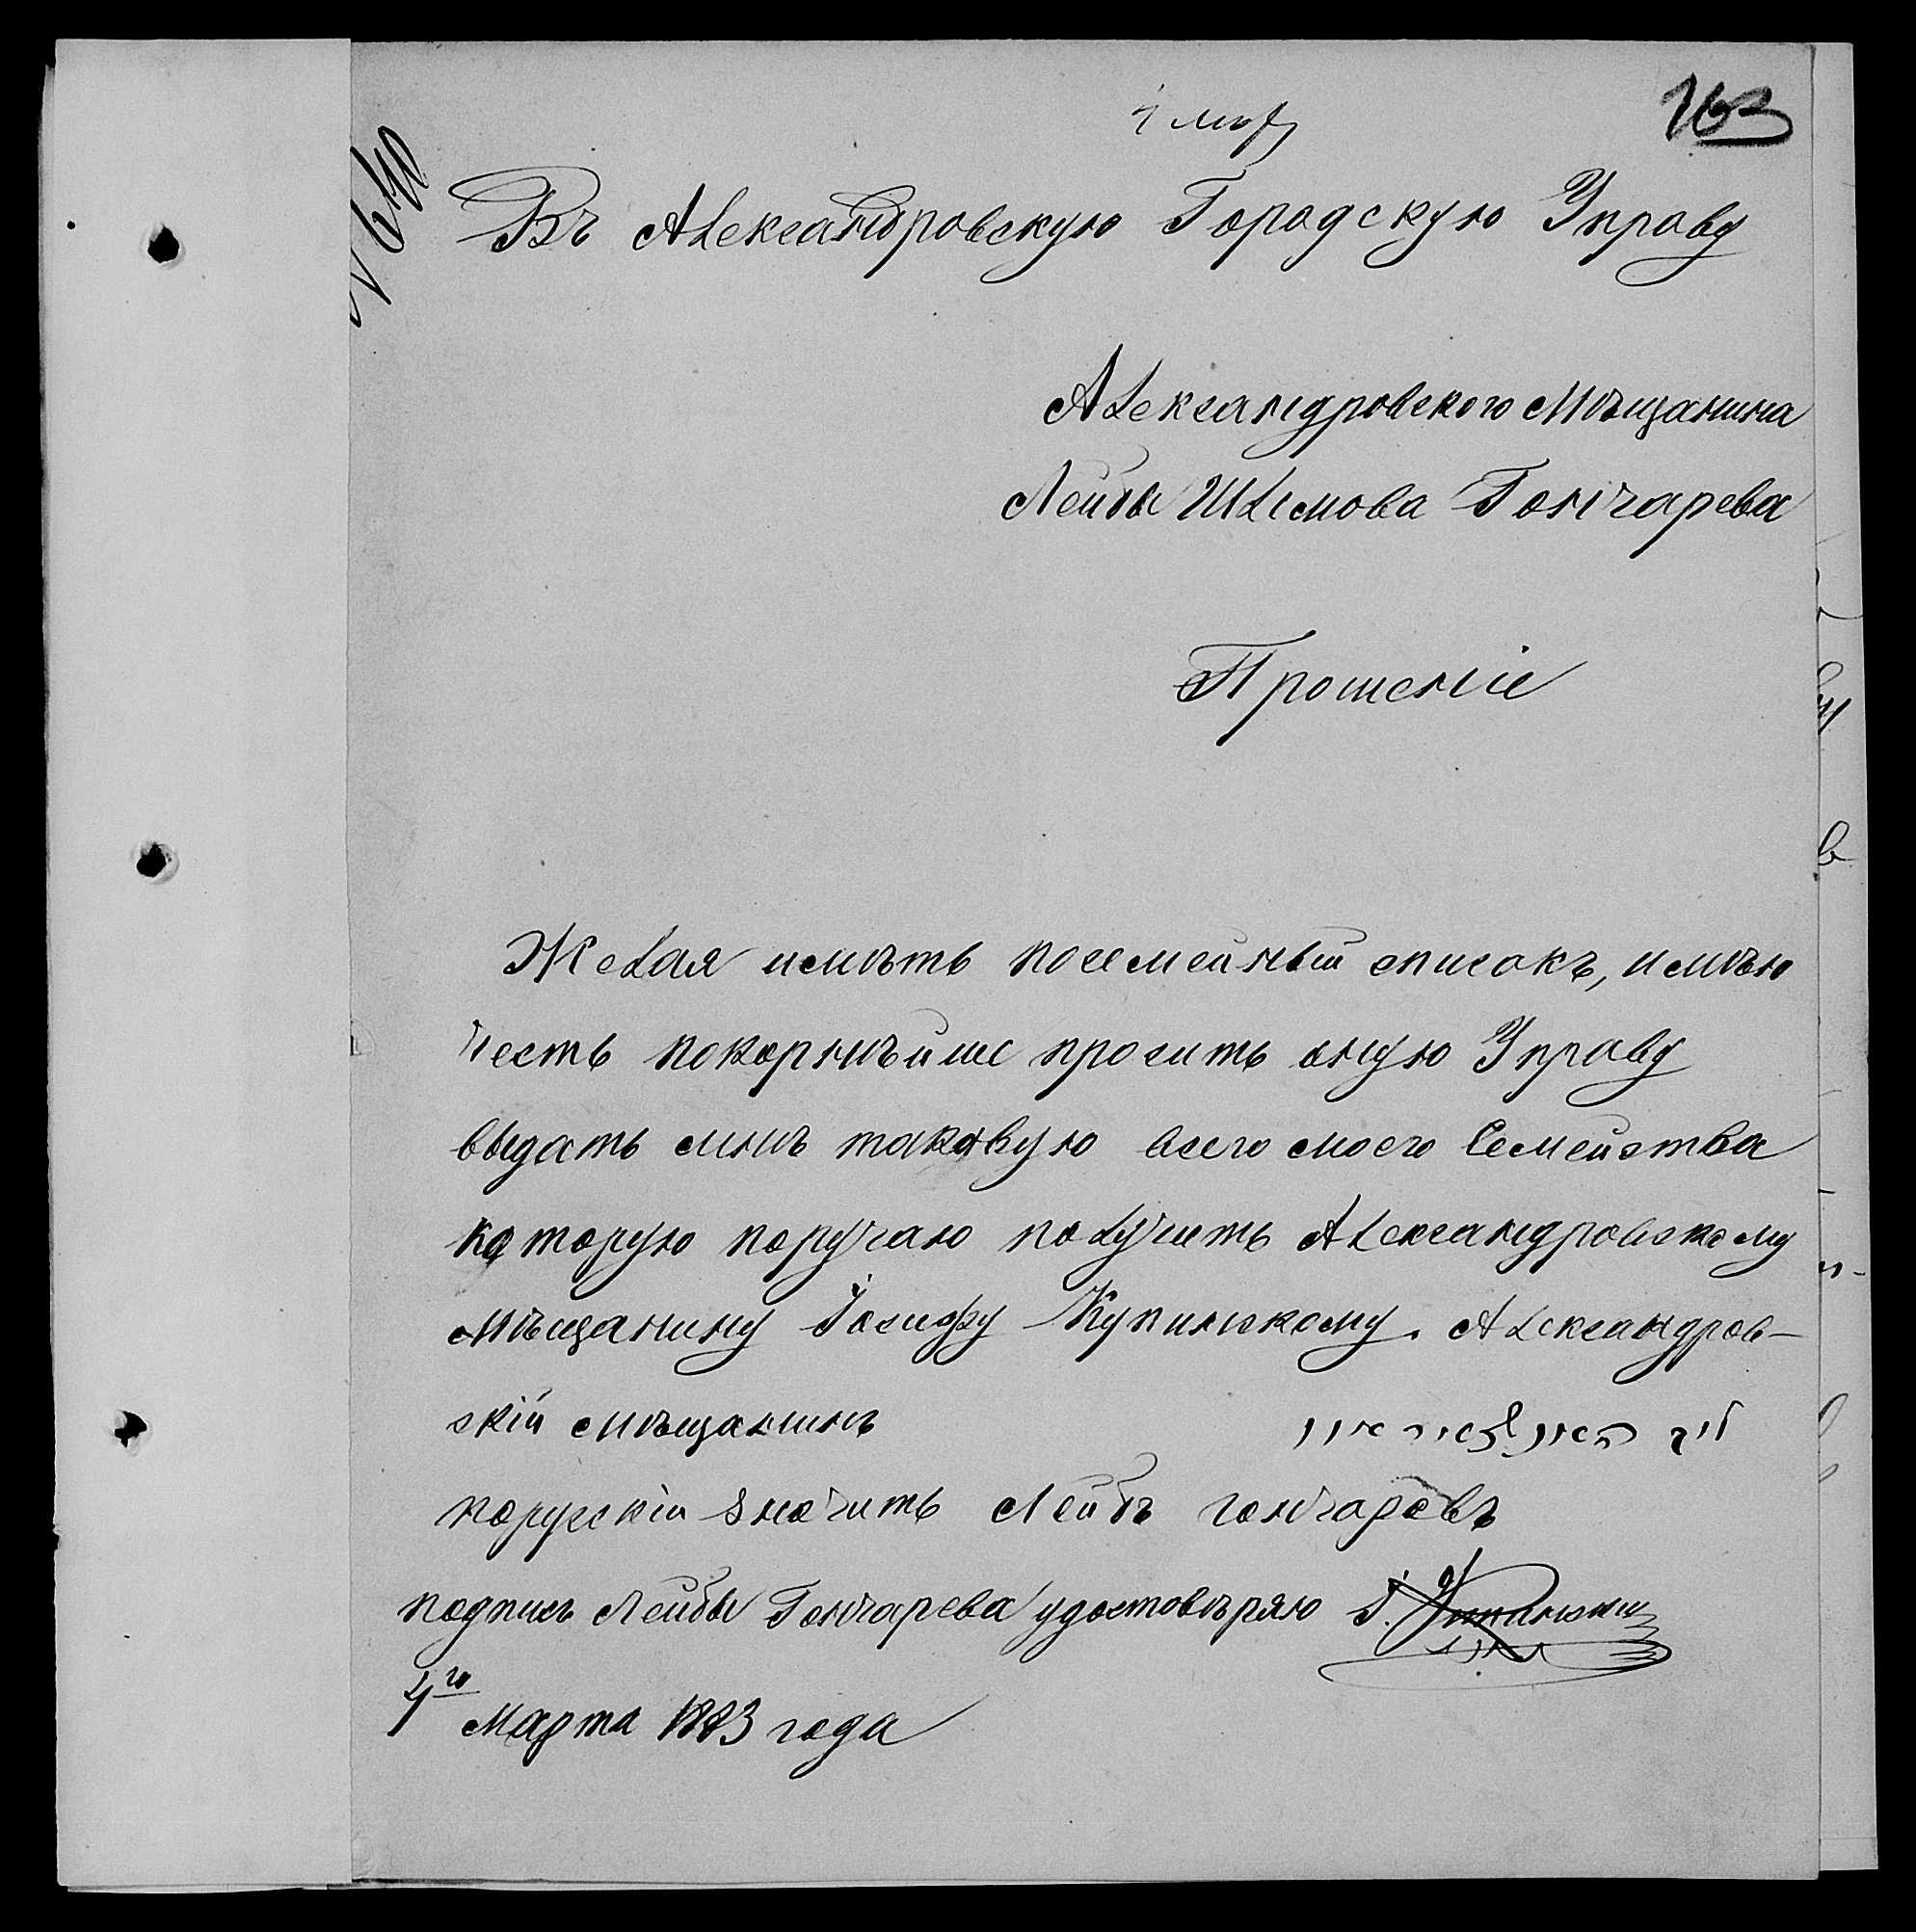 4 мар
163
№ 640
Въ Александровскую Городскую Управу
Александровского Мѣщанина
Лейбы Шлімова Гончарева
Прошеніе
Желая имѣть посемейный списокъ, имѣю
честь покорнѣйше просить оную Управу
выдать мнѣ таковую всего моего Семейства
которую поручаю получить Александровскому
Мѣщанину Іосифу Купинскому. Александров-
скій Мѣщанинъ
порускіи значитъ Лейбъ гончаревъ
подпись Лейбы Гончарева удостовѣряю І.
4го Марта 1883 года